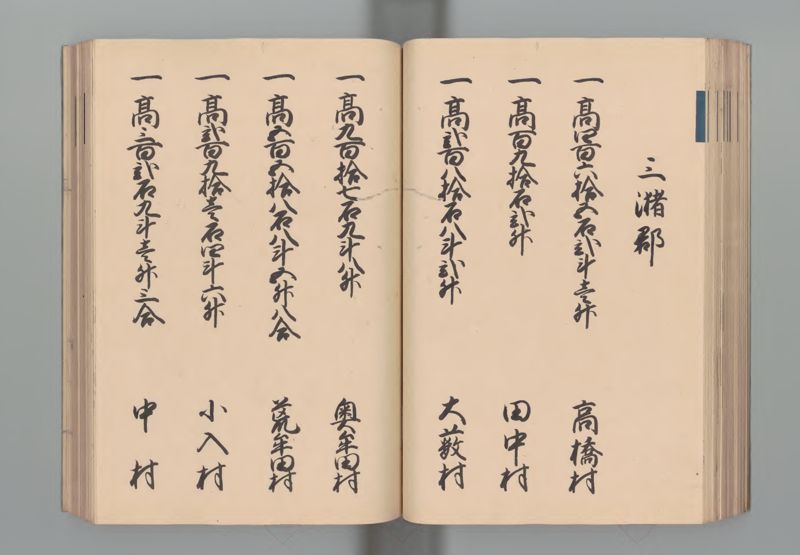 三潴郡
一高四百六拾五石弐斗壱升 高橋村
一高百九拾石弐升 田中村
一高弐百八拾石八斗弐升 大薮村
一高九百拾七石九斗八升 奥牟田村
一高五百五拾八石八斗五升八合 荒牟田村
一高弐百九拾壱石四斗六升 小入村
一高三百弐石九斗壱升三合 中村